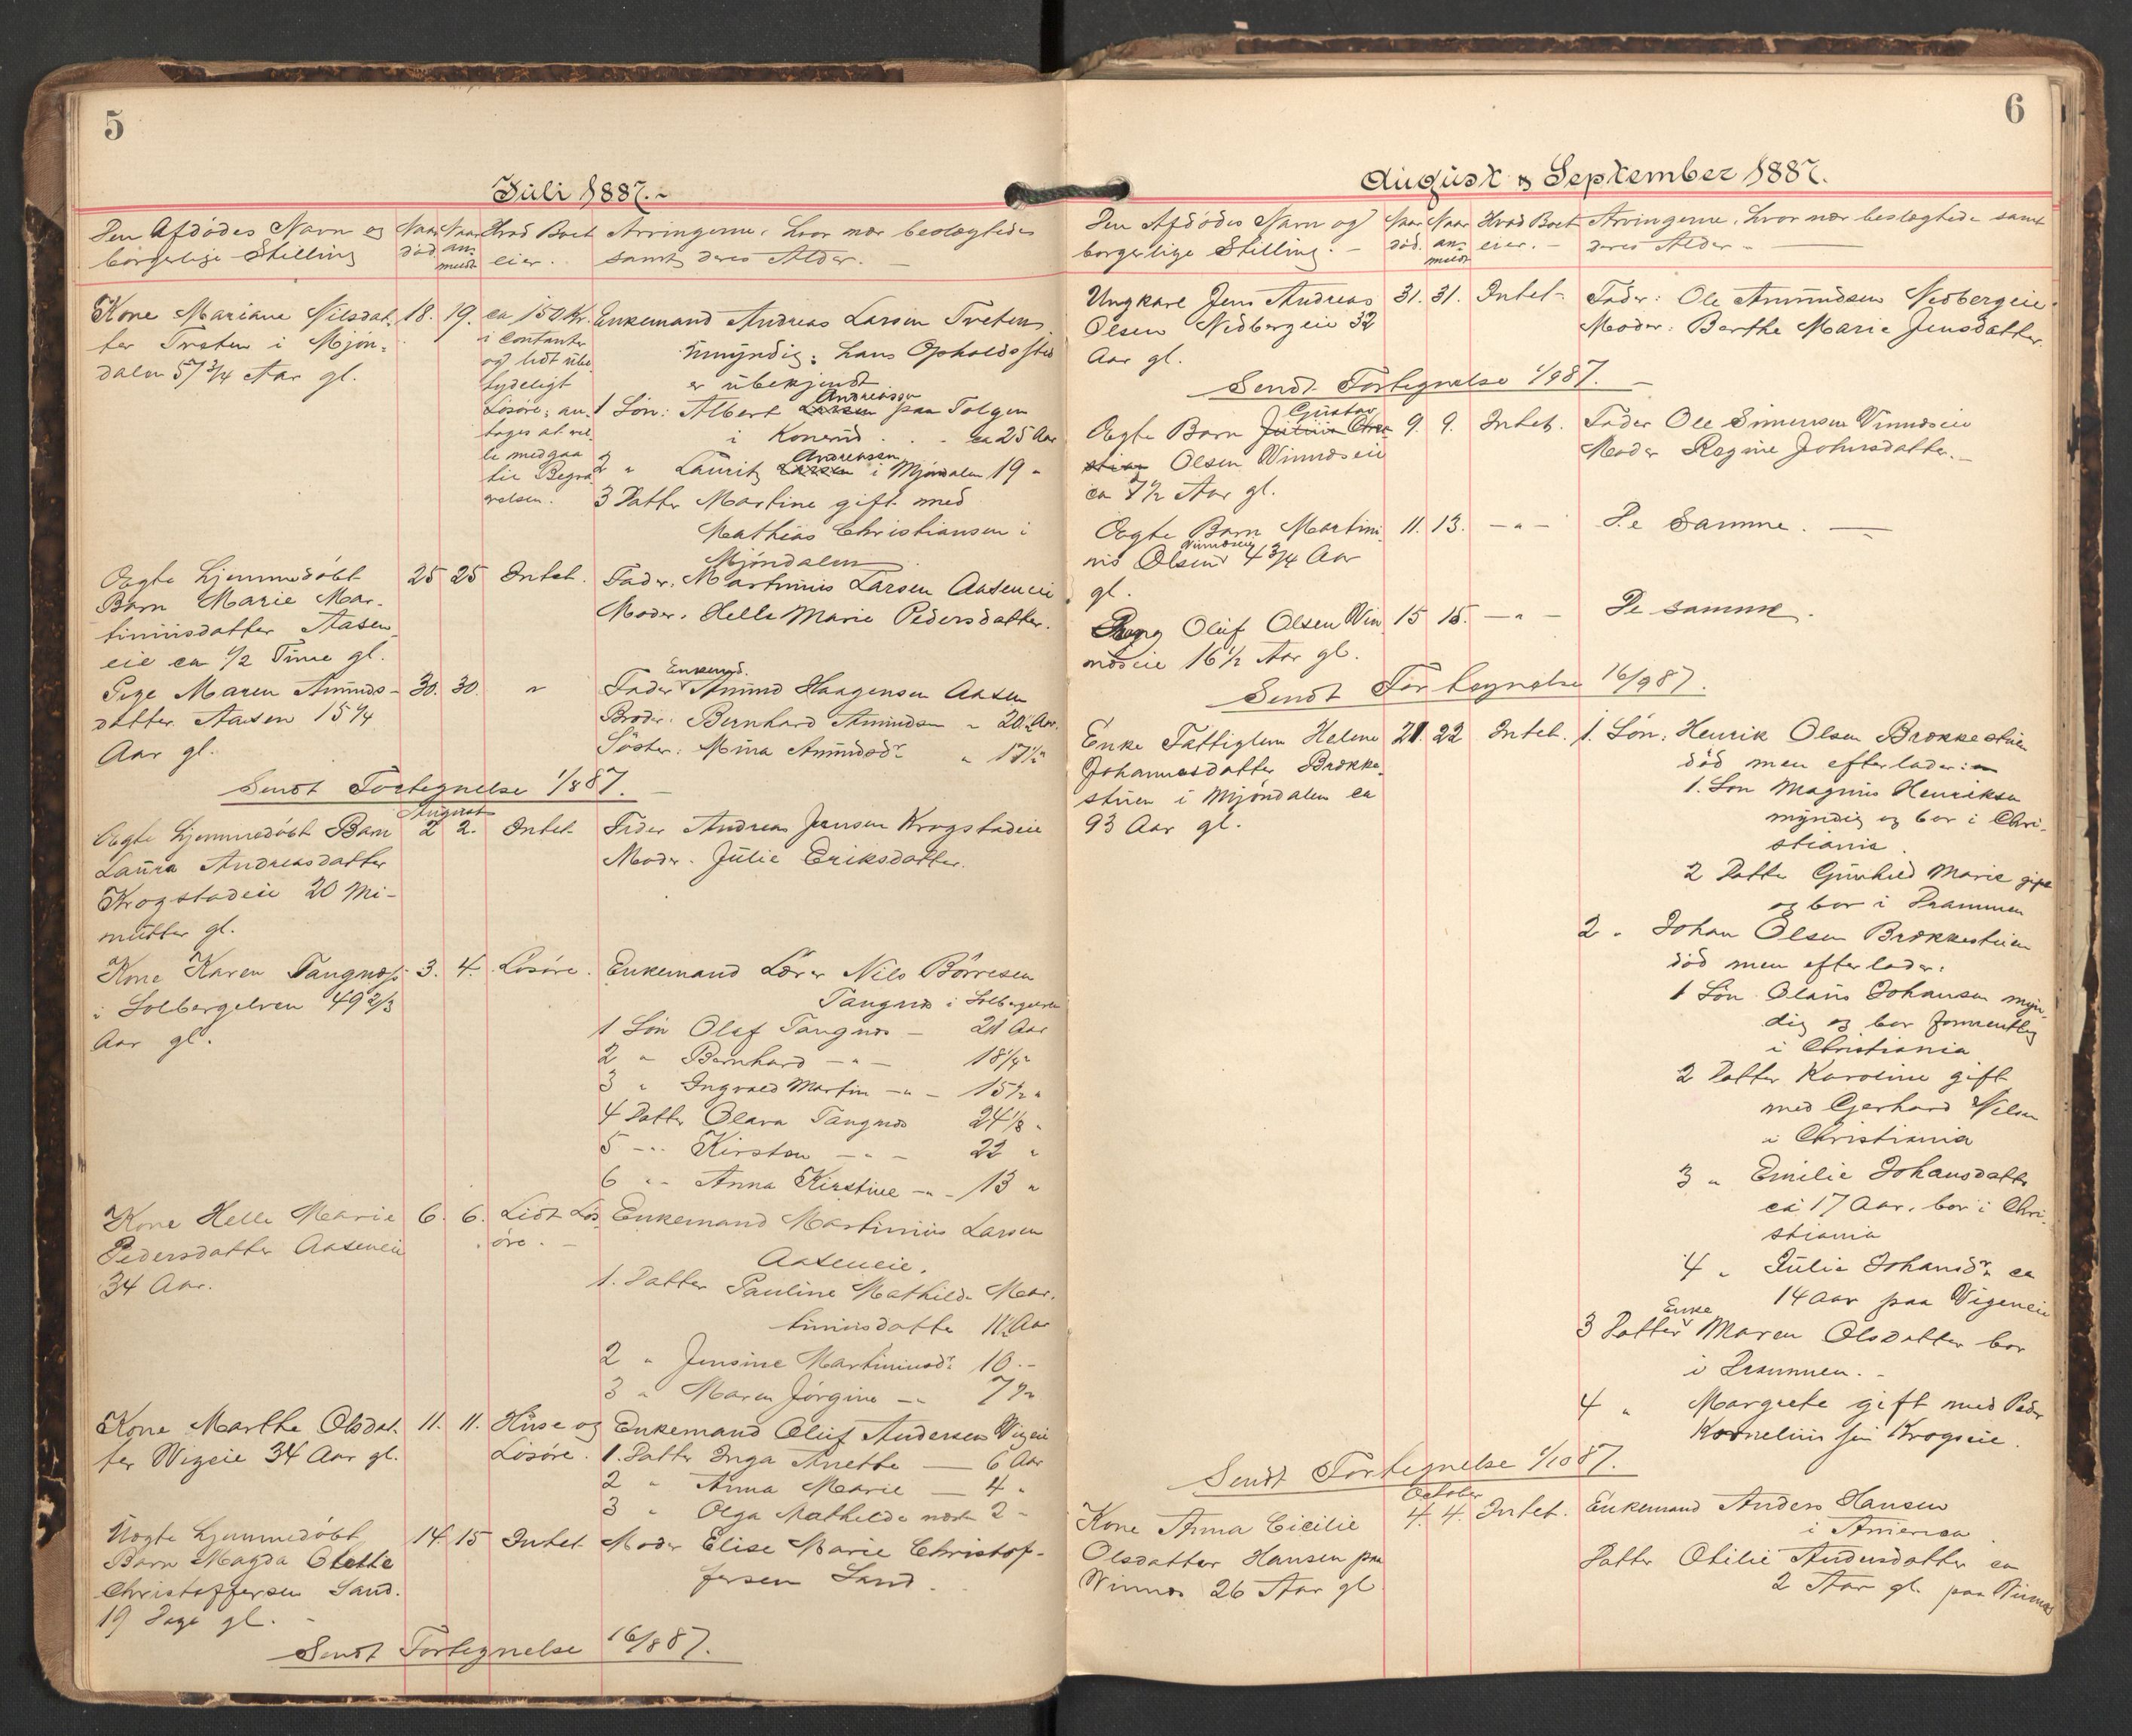 5
Juli 1887.-
Den Afdødes Navn og borgerlige Stilling
Naar død
Naar anmeldt
Hvad Boet eier.
Arvingerne, hvor nær beslægtede samt deres Alder.
Kone Mariane Nilsdat-
ter Træten i Mjøn-
dalen 57 3/4 Aar gl.
18. 19.
ca 150 Kr.
i Contanter
og lidt ube-
tydeligt
Løsøre; an-
tages at vil-
le medgaa
til Begra-
velsen.
Enkemand Andreas Larsen Træten
Umyndig: hans Opholdssted
er ubekjendt
1 Søn: Albert Larsen Andreassen paa Tolgen
i Konerud . . - ca 25 Aar
2 " Lauritz Larsen Andreassen i Mjøndalen 19 "
3 Datter Martine gift med
Mathias Christiansen i
Mjøndalen
Ægte hjemmedøbt
Barn Marie Mar-
tiniusdatter Aasen-
eie ca 1/2 Time gl.
25 25 Intet.
Fader. Martinius Larsen Aaseneie
Moder. Helle Marie Pedersdatter.
Pige Maren Amunds-
datter Aasen 15 1/4
Aar gl.
30. 30. "
Fader Enkemd. Amund Haagensen Aasen
Broder: Bernhard Amundsen " 20 1/2 Aar.
Søster: Mina Amundsdr " 17 1/2 "
Sendt Fortegnelse 1/8 87.
August
Ægte hjemmedøbt Barn
Laura Andreasdatter
Krogstadeie 20 Mi-
nutter gl.
2 2. Intet
Fader Andreas Jensen Krogstadeie
Moder. Julie Eriksdatter.
Kone Karen Tangnæs
i Solbergelven 49 2/3
Aar gl.
3. 4. Løsøre.
Enkemand Lærer Nils Börresen
Tangnæs i Solbergelven
1 Søn Olaf Tangnæs - 20 Aar
2 " Bernhard - " - 18 1/4 "
3 " Ingvald Martin - " - 15 1/2 "
4 Datter Olava Tangnæs 24 1/3 "
5 - " Kirsten - " - 22 "
6 " - Anna Kirstine - " - 13 "
Kone Helle Marie
Pedersdatter Aaseneie
34 Aar.
6. 6. Lidt Løs-
øre. -
Enkemand Martinius Larsen
Aaseneie.
1. Datter Pauline Mathilde Mar-
tiniusdatter 11 1/2 Aar
2 " Jensine Martiniusdr 10. -
3 " Maren Jørgine - " 7 1/2 "
Kone Marthe Olsdat-
ter Wigeie 34 Aar gl.
11. 11. Huse og
Løsøre.
Enkemand Oluf Andersen Wigeie
1. Datter Inga Anette — 6 Aar
2 " Anna Marie — 4 "
3 " Olga Mathilde næst 2 "
Uægte hjemmedøbt
Barn Magda Olette
Christoffersen Sand.
19 Dage gl. -
14. 15 Intet
Moder Elise Marie Christof-
fersen Sand.
Sendt Fortegnelse 16/8 87.
6
August & September 1887.
Den Afdødes Navn og borgerlige Stilling. -
Naar død.
Naar anmeldt
Hvad Boet eier. -
Arvingerne, hvor nær beslægtede samt deres Alder -
Ungkarl Jens Andreas
Olsen Nedbergeie 32
Aar gl.
31. 31. Intet-
Fader: Ole Amundsen Nedbergeie.
Moder: Berthe Marie Jensdatter.
Sendt Fortegnelse 1/9 87. -
Gustav
Ægte Barn Julius Chri-
stian Olsen Winndseie
ca 7 1/2 Aar gl.
9. 9. Intet.
Fader Ole Simensen Vinndseie
Moder Ragine Johnsdatter. -
Ægte Barn Martini-
nus Olsen Winndseie 4 3/4 Aar
gl.
11. 13. - " -
De Samme. —
Oluf Olsen Win-
ndseie 16 1/2 Aar gl.
15 15. - " -
De samme.
Sendt Fortegnelse 16/9 87.
Enke Fattiglem Helene
Johannesdatter Brække-
stuen i Mjøndalen ca
93 Aar gl.
21. 22 Intet.
1. Søn: Henrik Olsen Brækkestuen
død men efterlader:
1. Søn Magnus Henriksen
myndig og bor i Chri-
stiania.
2 Datter Gunhild Marie gift
og bor i Drammen
2 " Johan Olsen Brækkestuen
død men efterlader:
1 Søn Olaus Johansen myn-
dig og bor formentlig
i Christiania
2 Datter Karoline gift
med Gerhard Nilsen
i Christiania
3 " Emilie Johansdatter
ca 17 Aar, bor i Chri-
stiania
4 " Julie Johansdr ca
14 Aar paa Vigeneie
3 Datter Enke Maren Olsdatter bor
i Drammen. -
4 " Margrete gift med Peder
Kornelius sen Krogseie.
Sendt Fortegnelse 1/10 87.
October
Kone Anna Cicilie
Olsdatter Hansen paa
Winnæs 26 Aar gl
4. 4. Intet.
Enkemand Anders Hansen
i America
Datter Otilie Andersdatter ca
2 Aar gl. paa Winnæs